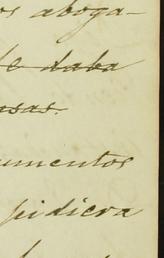 os aboga-
se daba
usas.
umentos
pidiera